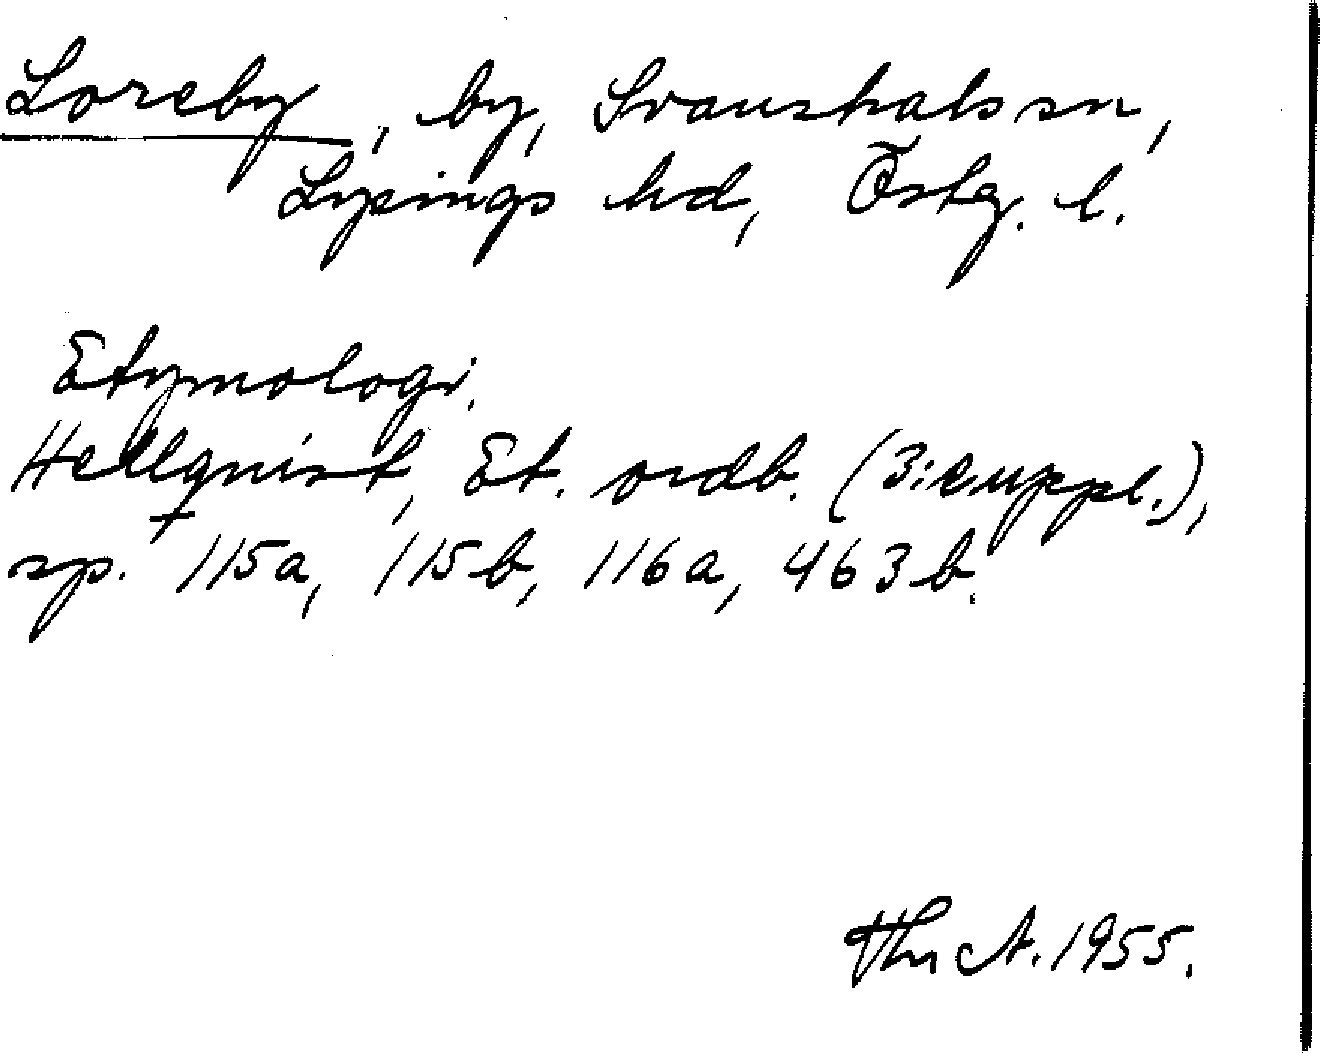 Loreby, by, Svanshals sn,
Lysings hd, Östg. l.
Etymologi.
Hellquist, Et. ordb. (3:e uppl.),
sp. 115a, 115b, 116a, 463b.
Thr A. 1955.